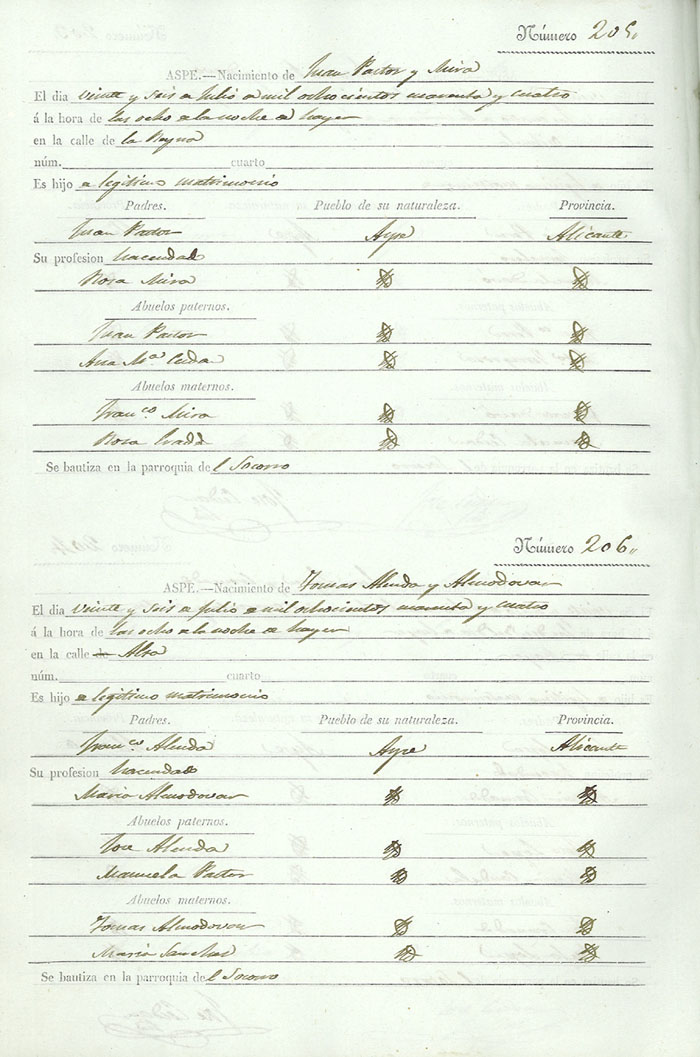 Número 205.
ASPE.—Nacimiento de Juan Pastor y Mira
El dia veinte y seis de Julio de mil ochocientos cuarenta y cuatro
á la hora de las ocho de la noche de hayer
en la calle de la Reyna
núm. cuarto
Es hijo de legitimo matrimonio
Padres. Pueblo de su naturaleza. Provincia.
Juan Pastor Aspe Alicante
Su profesion hacendado
Rosa Mira
Abuelos paternos.
Juan Pastor
Ana Mª
Abuelos maternos.
Franco Mira
Rosa
Se bautiza en la parroquia del Socorro
Número 206.
ASPE.—Nacimiento de Tomas Alenda y Almodovar
El dia veinte y seis de Julio de mil ochocientos cuarenta y cuatro
á la hora de las ocho de la noche de hayer
en la calle de Alta
núm. cuarto
Es hijo de legitimo matrimonio
Padres. Pueblo de su naturaleza. Provincia.
Franco Alenda Aspe Alicante
Su profesion hacendado
Maria Almodovar
Abuelos paternos.
Jose Alenda
Manuela Pastor
Abuelos maternos.
Tomas Almodovar
Maria Sanchez
Se bautiza en la parroquia del Socorro